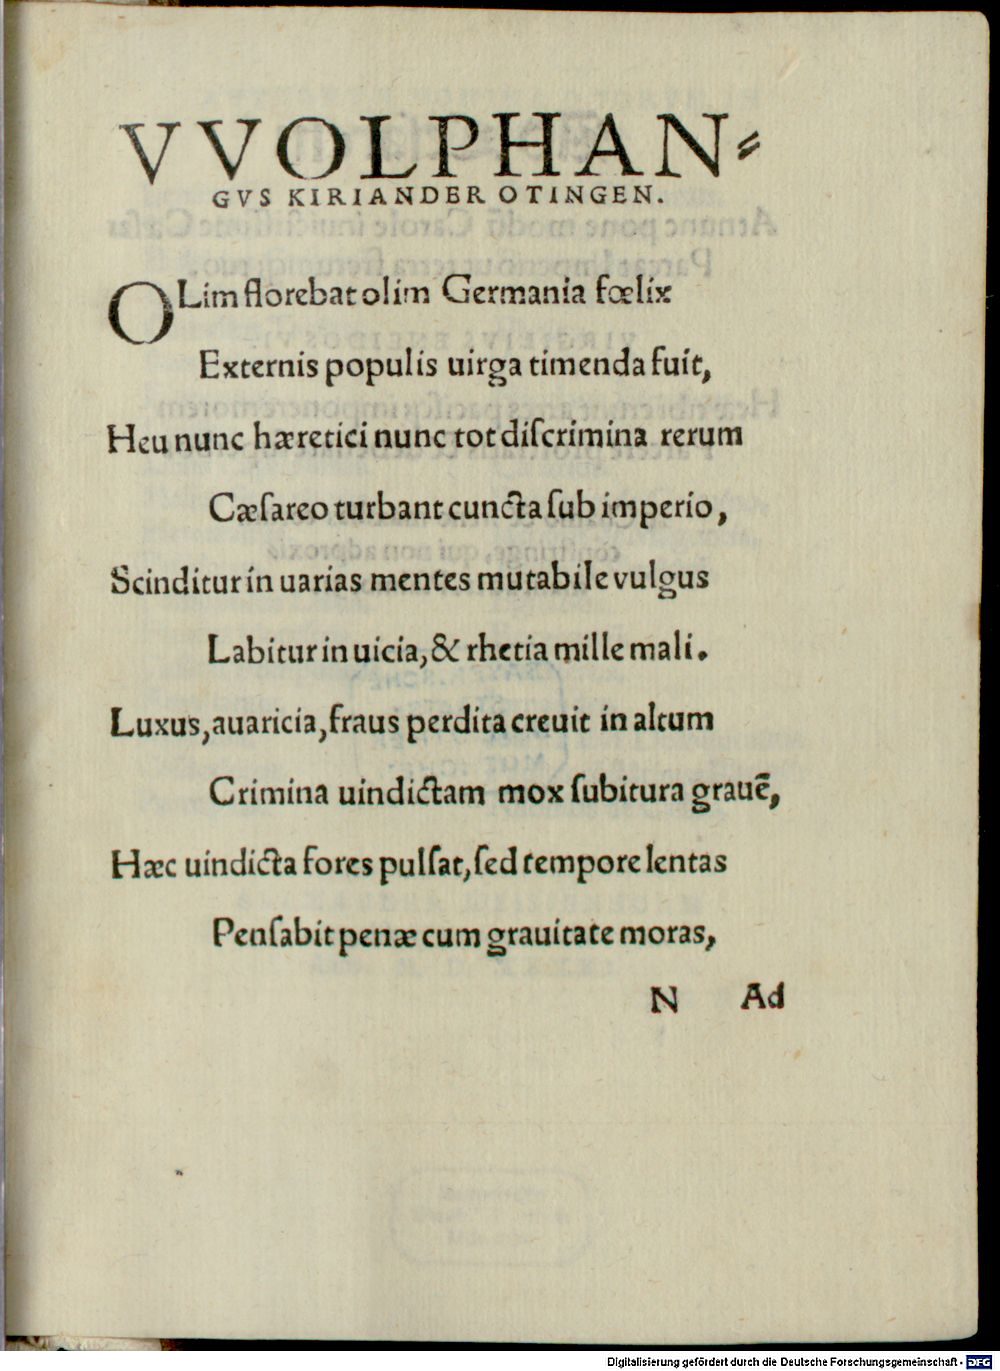 VVOLPHAN⸗
GVS KIRIANDER OTINGEN.
OLim florebat olim Germania fœlix
Externis populis uirga timenda fuit,
Heu nunc hæretici nunc tot diſcrimina rerum
Cæſareo turbant cuncta ſub imperio,
Scinditur in uarias mentes mutabile vulgus
Labitur in uicia, & rhetia mille mali.
Luxus, auaricia, fraus perdita creuit in altum
Crimina uindictam mox ſubitura grauē,
Hæc uindicta fores pulſat, ſed tempore lentas
Penſabit penæ cum grauitate moras,
N Ad
Digitalisierung gefördert durch die Deutsche Forschungsgemeinschaft - DFG